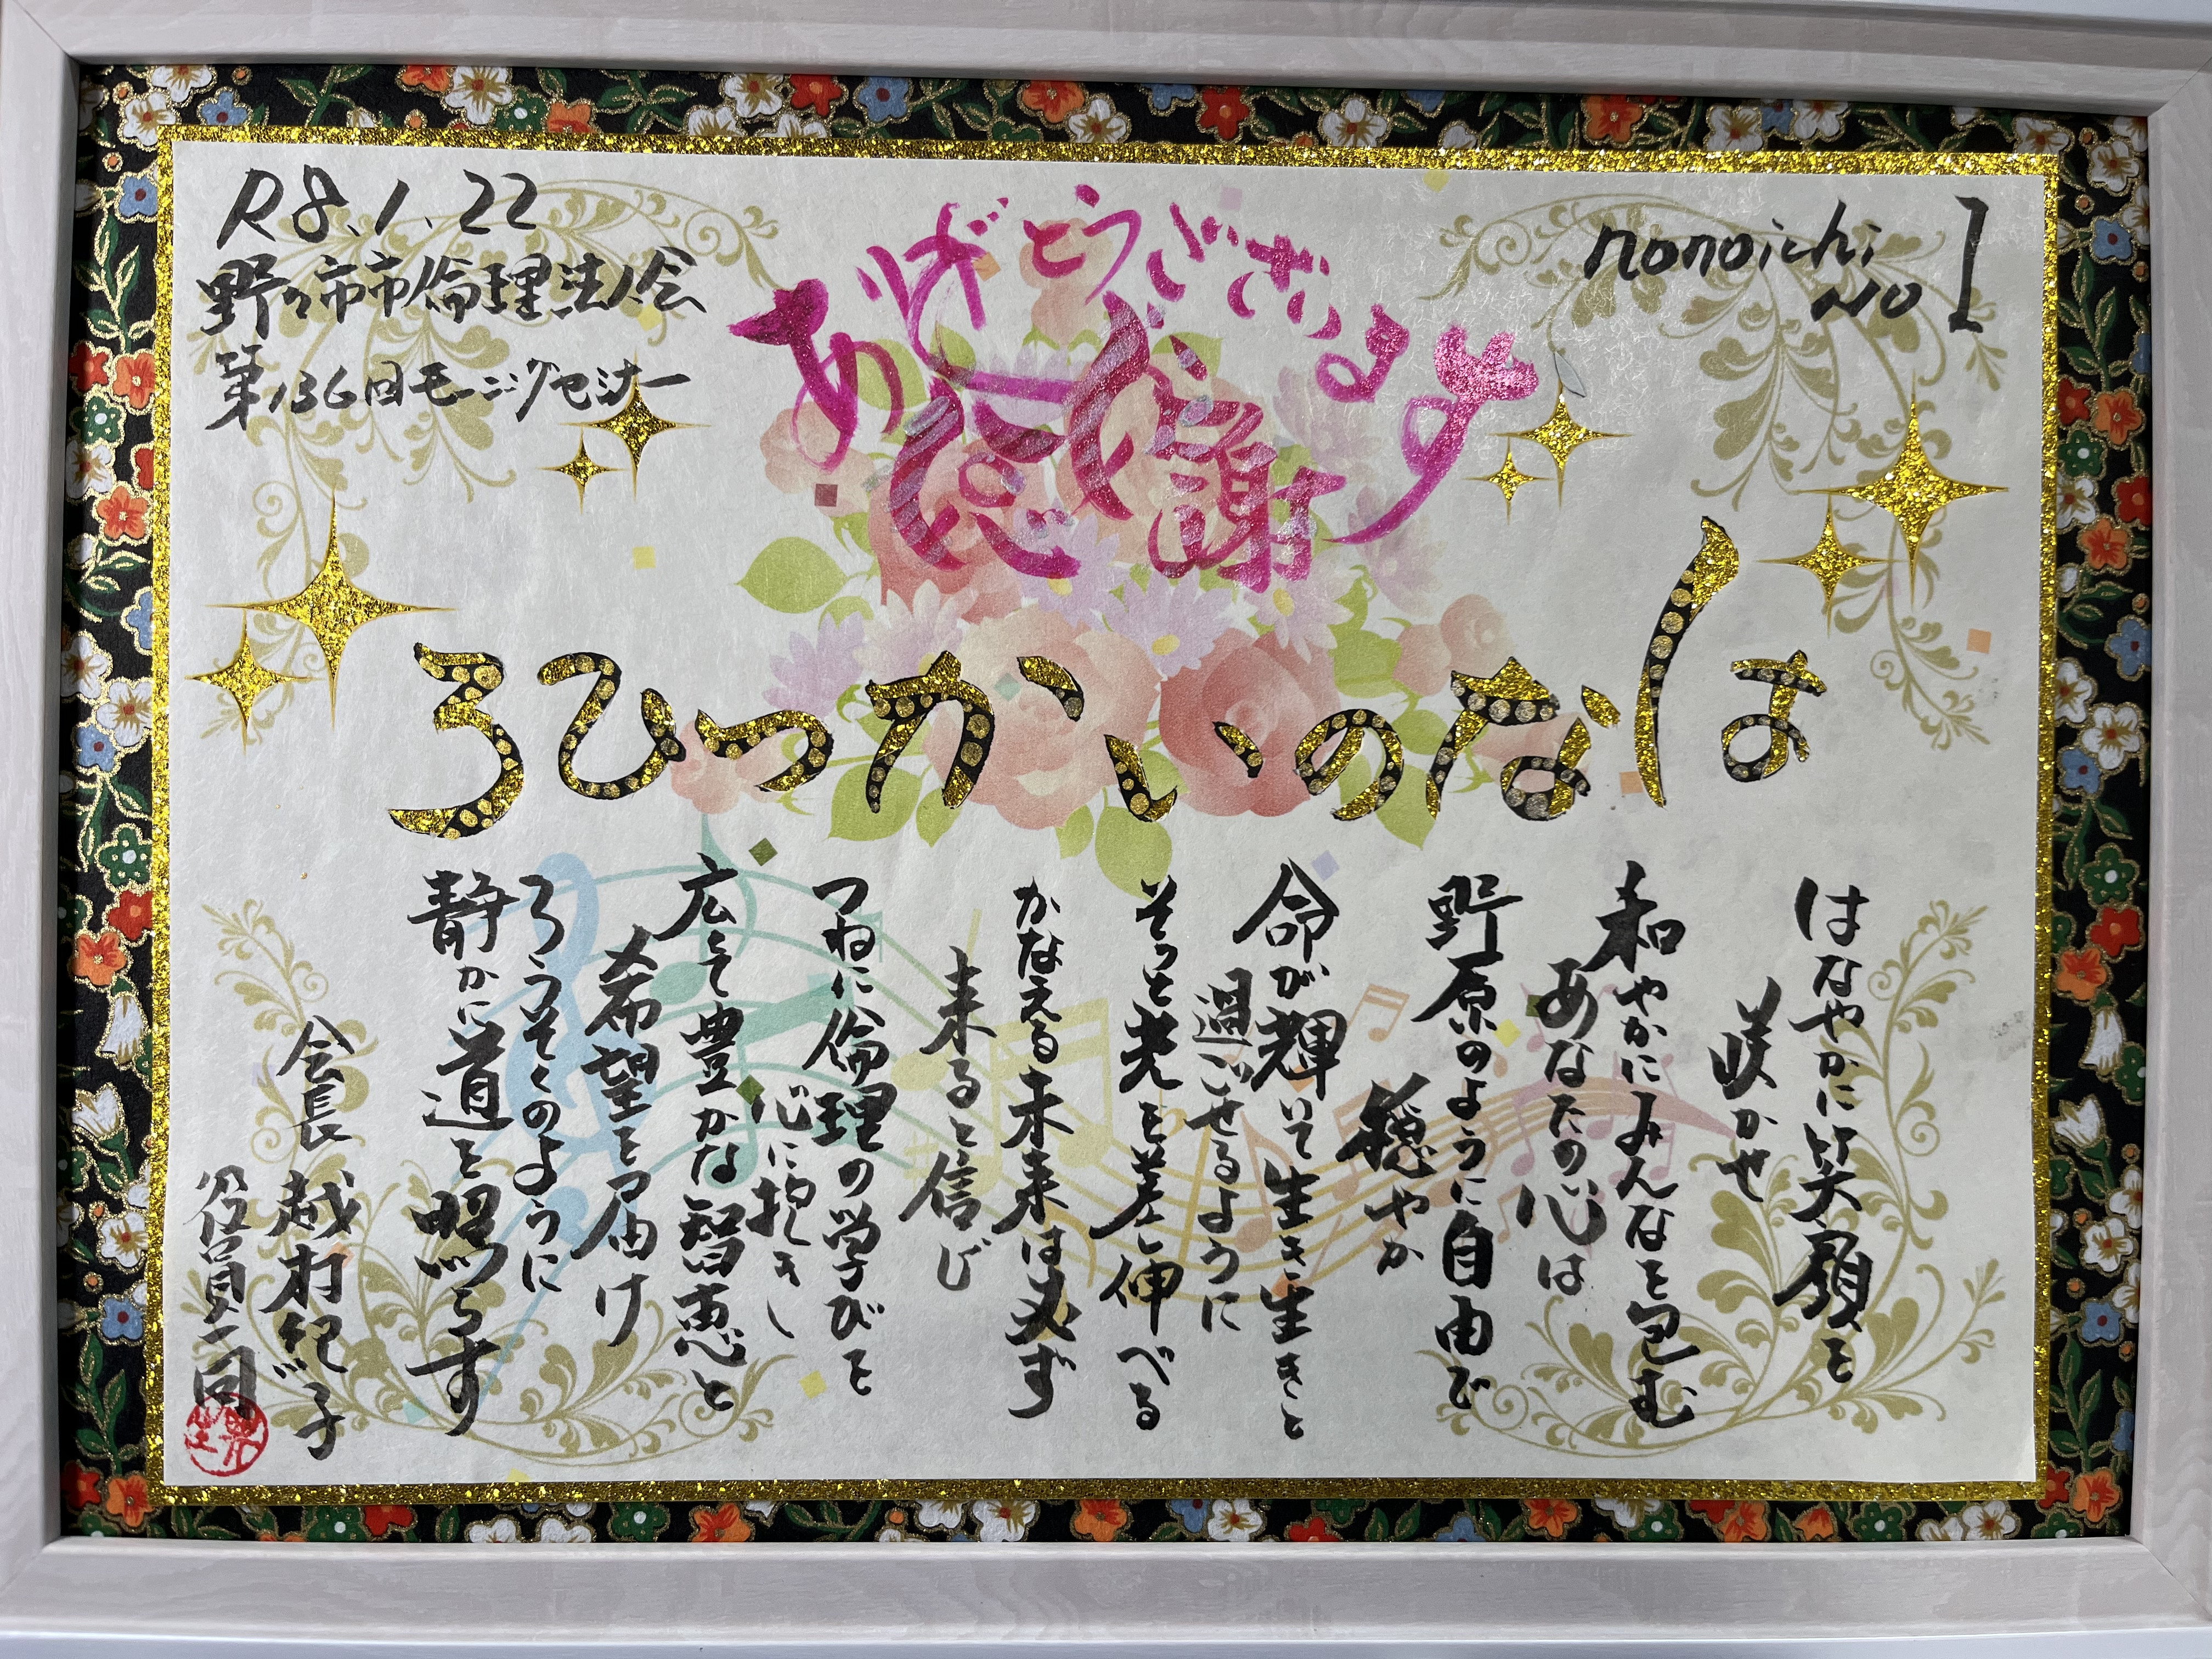 R8.1.22
野々市市倫理法人会
第136回モーニングセミナー
ありがとうございます
感謝
nonoichi
NO 1
はなのいかつひろ
はなやかに笑顔を
咲かせ
和やかにみんなを包む
あなたの心は
野原のように自由で
穏やか
命が輝いて生き生きと
過ごせるように
そっと光を差し伸べる
かなえる未来は必ず
来ると信じ
つねに倫理の学びを
心に抱きし
広くて豊かな智恵と
希望を届け
ろうそくのように
静かに道を照らす
会長 越村紀子
役員一同